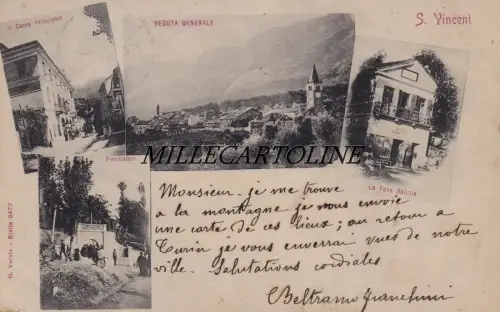 Il Corso Principale
VEDUTA GENERALE
S. Vincent
Funicolare
MILLECARTOLINE
LA Fons Salutis
G. Varale - Biella 8472
Monsieur. je me trouve
a la montagne je vous envoie
une carte de ces lieux; au retour a
Turin je vous enverrai vues de notre
ville. Salutations cordiales
Beltramo